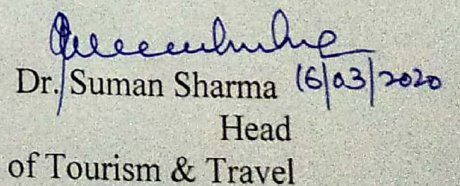 Dr. Suman Sharma 16/03/2020
Head
of Tourism & Travel